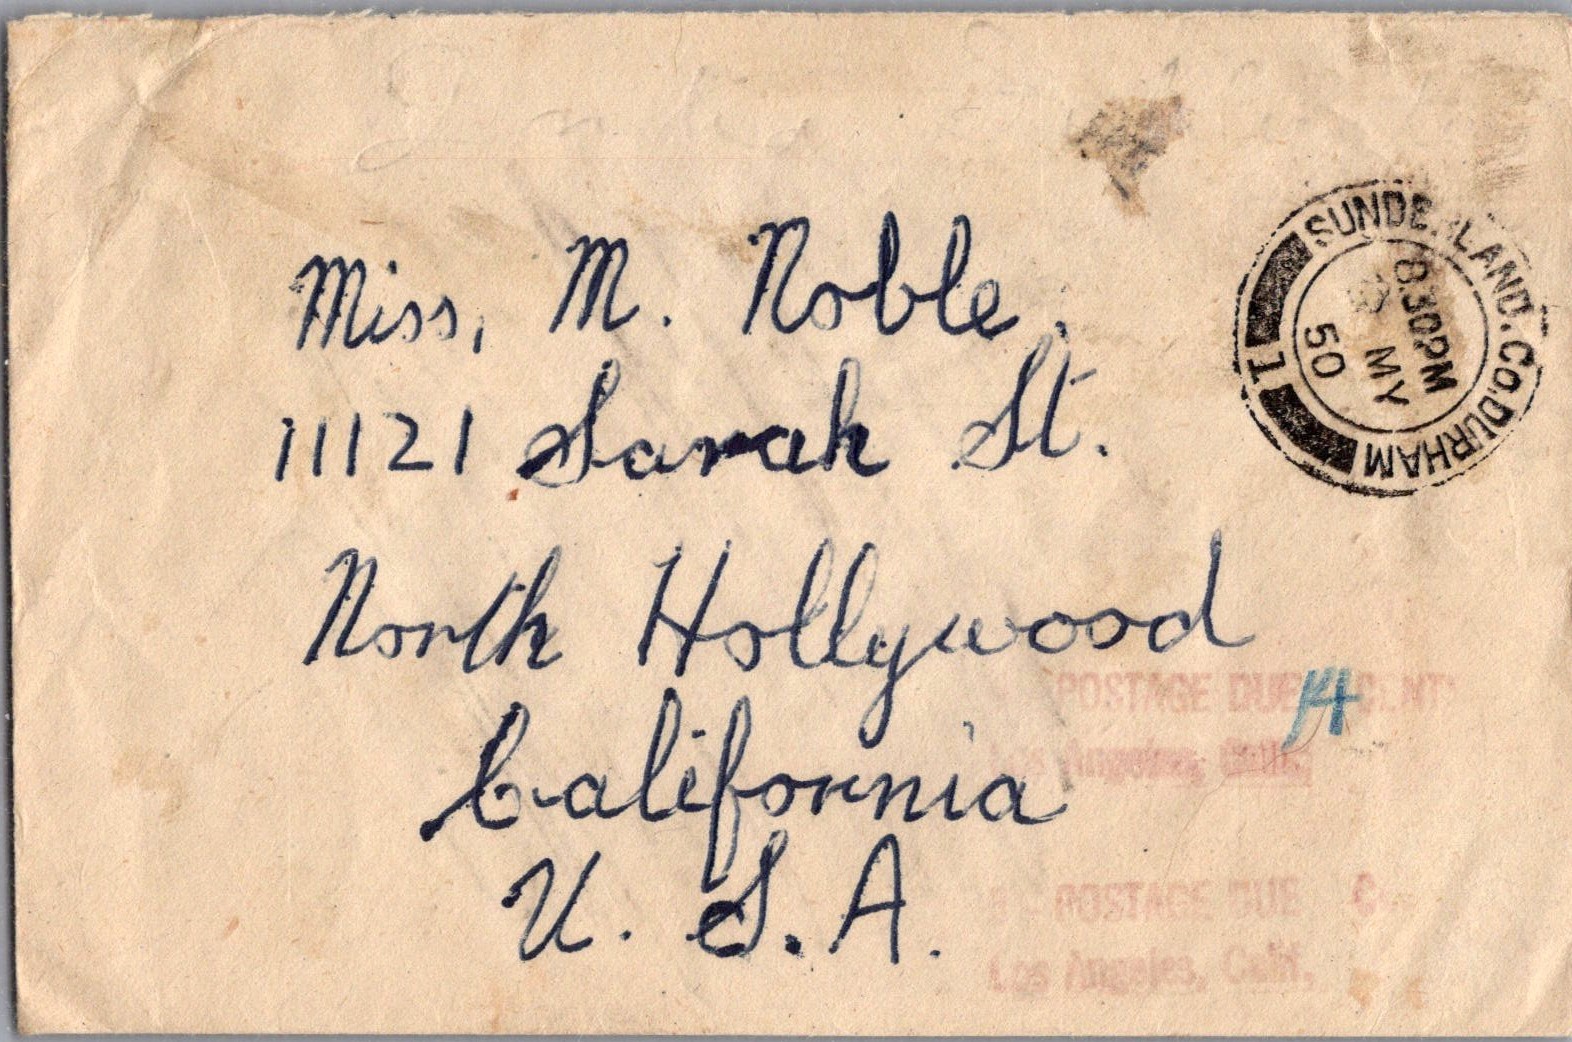 SUNDERLAND. Co. DURHAM
1
8.30PM
MY
50
Miss, M. Noble.
11121 Sarah St.
North Hollywood
California
U. S. A.
POSTAGE DUE 14 CENTS
Los Angeles, Calif.
POSTAGE DUE
Los Angeles, Calif.